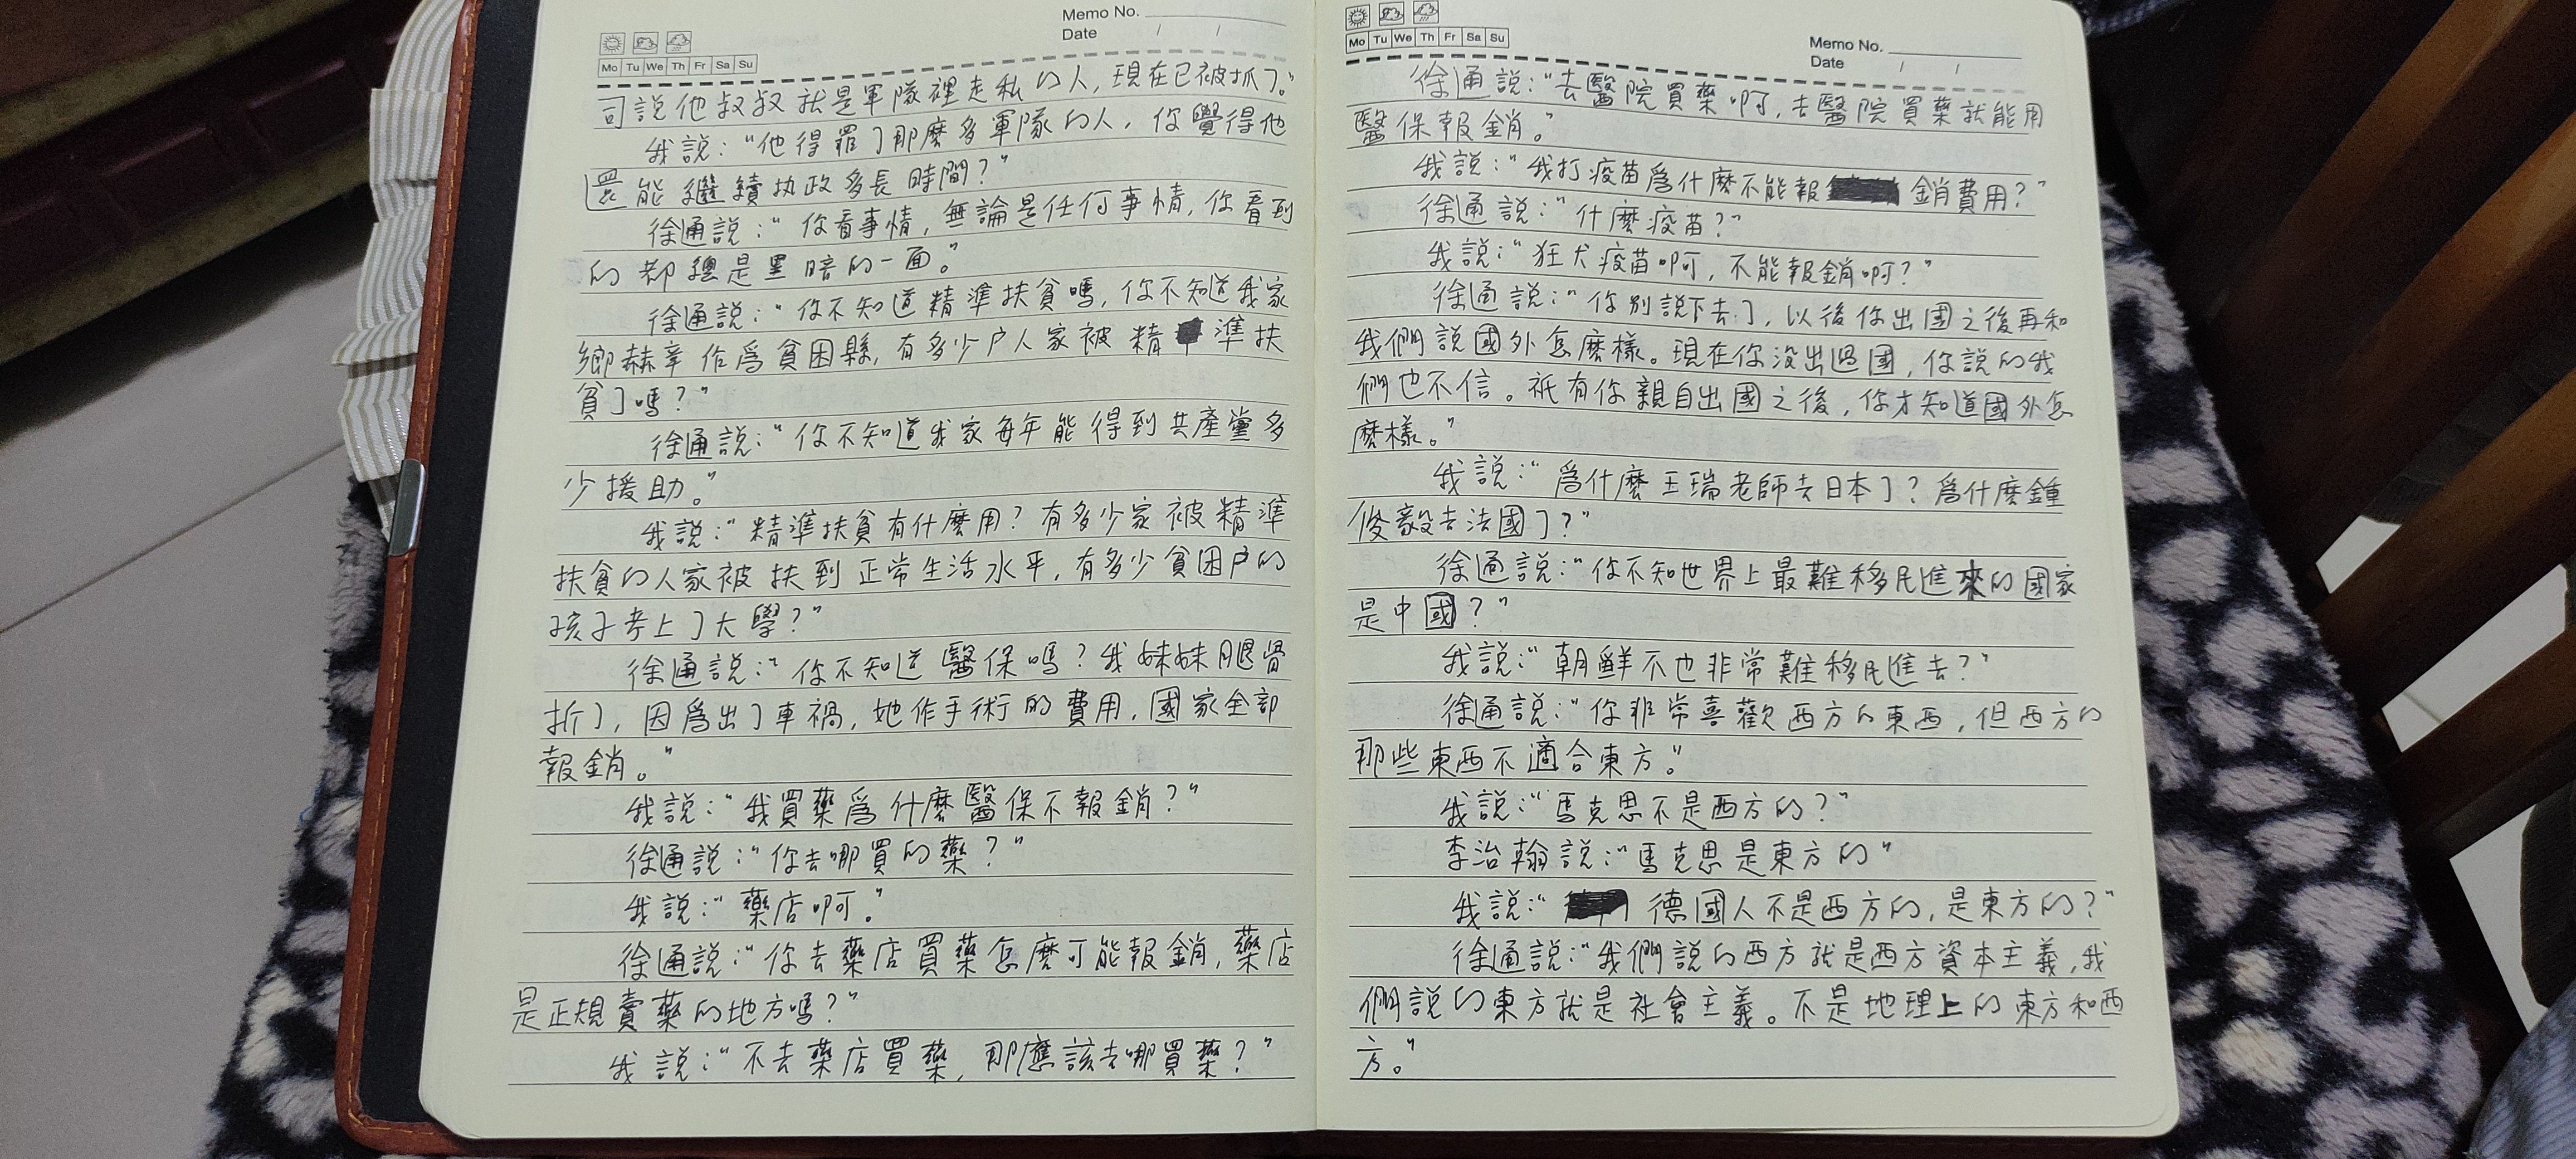 Memo No.
Date / /
Mo Tu We Th Fr Sa Su
司説他叔叔就是軍隊裡走私的人,現在已被抓了。"
我説:"他得罪了那麽多軍隊的人,你覺得他
還能繼續执政多長時間?"
徐通説:"你看事情,無論是任何事情,你看到
的都總是黑暗的一面。"
徐通説:"你不知道精準扶貧嗎,你不知道我家
鄉赫章作爲貧困縣,有多少户人家被精準扶
貧了嗎?"
徐通説:"你不知道我家每年能得到共產黨多
少援助。"
我説:"精準扶貧有什麽用?有多少家被精準
扶貧的人家被扶到正常生活水平,有多少貧困户的
孩子考上了大學?"
徐通説:"你不知道醫保嗎?我妹妹腿骨
折了,因爲出了車禍,她作手術的費用,國家全部
報銷。"
我説:"我買藥爲什麽醫保不報銷?"
徐通説:"你去哪買的藥?"
我説:"藥店啊。"
徐通説:"你去藥店買藥怎麽可能報銷,藥店
是正規賣藥的地方嗎?"
我説:"不去藥店買藥,那應該去哪買藥?"
Mo Tu We Th Fr Sa Su
Memo No.
Date / /
徐通説:"去醫院買藥啊,去醫院買藥就能用
醫保報銷。"
我説:"我打疫苗爲什麽不能報銷費用?"
徐通説:"什麽疫苗?"
我説:"狂犬疫苗啊,不能報銷啊?"
徐通説:"你别説下去了,以後你出國之後再和
我們説國外怎麽樣。現在你没出過國,你説的我
們也不信。祇有你親自出國之後,你才知道國外怎
麽樣。"
我説:"爲什麽王瑞老師去日本了?爲什麽鍾
俊毅去法國了?"
徐通説:"你不知世界上最難移民進來的國家
是中國?"
我説:"朝鮮不也非常難移民進去?"
徐通説:"你非常喜歡西方的東西,但西方的
那些東西不適合東方。"
我説:"馬克思不是西方的?"
李治翰説:"馬克思是東方的"
我説:"德國人不是西方的,是東方的?"
徐通説:"我們説的西方就是西方資本主義,我
們説的東方就是社會主義。不是地理上的東方和西
方。"